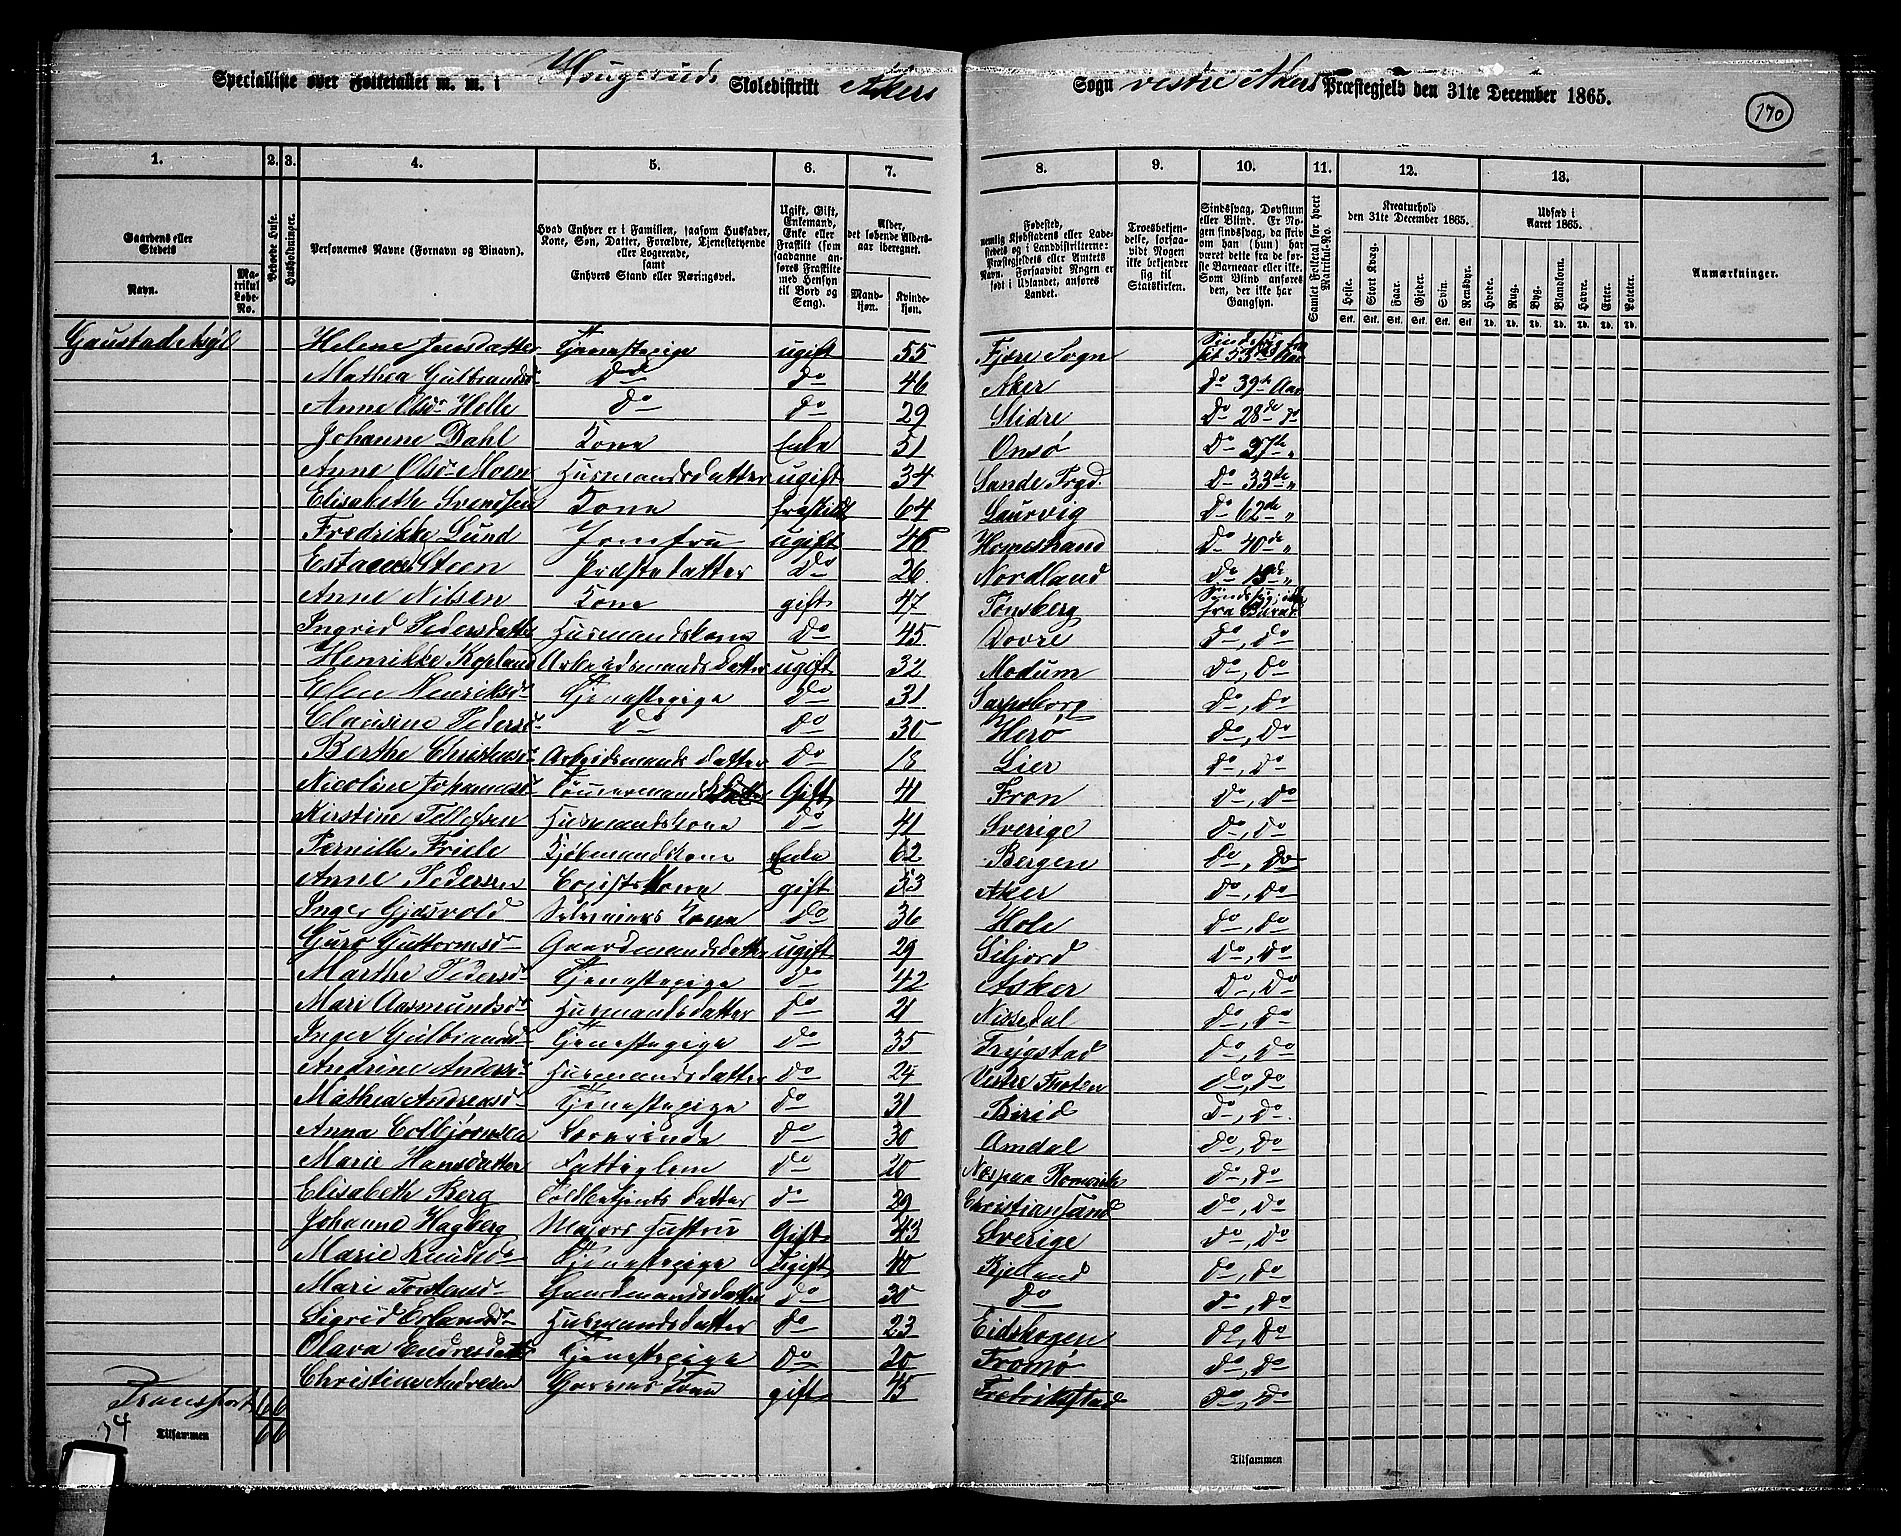 Specialliste over Folketallet m. m. i Hougeruds Skoledistrikt Akers Sogn vestre Akers Præstegjeld den 31te December 1865.
170
1. 2. 3. 4. 5. 6. 7. 8. 9. 10. 11. 12. 13.
Gaardens eller Stedets
Navn.
Matrikul Løbe-No.
Beboede Huse.
Husholdninger.
Personernes Navne (Fornavn og Binavn).
Hvad Enhver er i Familien, saasom Husfader, Kone, Søn, Datter, Forældre, Tjenestetyende eller Logerende, samt Enhvers Stand eller Næringsvei.
Ugift, Gift, Enkemand, Enke eller Fraskilt (som saadanne anføres Fraskilte med Hensyn til Bord og Seng).
Alder, det løbende Aldersaar iberegnet.
Mandkjøn.
Kvindekjøn.
Fødested, nemlig Kjøbstadens eller Ladestedets og i Landdistrikterne: Præstegjeldets eller Amtets Navn. Forsaavidt Nogen er født i Udlandet, anføres Landet.
Troesbekjendelse, forsaavidt Nogen ikke bekjender sig til Statskirken.
Sindssvag, Døvstum eller Blind. Er Nogen sindssvag, da skriv om han (hun) har været dette fra de første Barneaar eller ikke. Som Blind anføres den, der ikke har Gangsyn.
Samlet Folketal for hvert Matrikul-No.
Kreaturhold den 31te December 1865.
Heste. Stort Kvæg. Faar. Gjeder. Svin. Rensdyr.
Udsæd i Aaret 1865.
Hvede. Rug. Byg. Blandkorn. Havre. Erter. Poteter.
Anmærkninger.
Gaustad Asyl Helene Jensdatter Tjenestepige ugift 55 Fjære Sogn 53de Aar
Mathea Gulbrandsd. Do Do 46 Aker Do 39te Aar
Anne Olsd. Helle Do Do 29 Slidre Do 28de do
Johanne Dahl Kone Enke 51 Onsø Do 37te "
Anne Olsd. Moen Husmandsdatter ugift 34 Sande Do 33te "
Elisabeth Svendsen Kone fraskildt 64 Laurvig Do 62de "
Fredrikke Lund Jomfru ugift 46 Holmestrand Do 40de "
Steen Præstedatter Do 26 Nordland Do 13de "
Anne Nilsen Kone gift 47 Tønsberg fra
Ingrid Pedersdatter Husmandskone Do 45 Dovre Do, Do
Henrikke Arbeidsmandsdatter ugift 32 Modum Do, Do
Elen Henriksd. Tjenestepige Do 31 Sarpsborg Do, Do
Clausine Pedersd. Do Do 30 Herø Do, Do
Berthe Christensd. Arbeidsmandsdatter Do 18 Lier Do, Do
Nicoline Johannesd. Gift 41 Fron Do, Do
Kirstine Tellefsen Husmandskone Do 41 Sverige Do, Do
Pernille Friele Kjøbmandskone Enke 62 Bergen Do, Do
Anne Pedersen gift 53 Aker Do, Do
Inger Gjesvold Selveiers Kone Do 36 Hole Do, Do
Guro Guttormsd. Gaardmandsdatter ugift 29 Siljord Do, Do
Marthe Pedersd. Tjenestepige Do 42 Asker Do, Do
Mari Aasmundsd. Husmandsdatter Do 21 Nissedal Do, Do
Inger Gulbrandsd. Tjenestepige Do 35 Trygstad Do, Do
Andrine Andersd. Husmandsdatter Do 24 Vestre Thoten Do, Do
Mathea Andreasd. Tjenestepige Do 31 Birid Do, Do
Anna Tjenestepige Do 30 Amdal Do, Do
Marie Hansdatter Fattiglem Do 20 Næs paa Romerike Do, Do
Elisabeth Berg Toldbetjents datter do 29 Christiansand Do, Do
Johanne Hagberg Majors Hustru Gift 43 Sverige Do, Do
Marie Knudsd. Tjenestepige Ugift 40 Bjelland Do, Do
Mari Gaardmandsdatter Do 30 Do Do, Do
Sigrid Erlandsd. Husmandsdatter Do 23 Eidskogen Do, Do
Olava Tjenestepige Do 20 Tromø Do, Do
Christine Andresen Kone gift 45 Fredrikstad Do, Do
Transport 6 6
34 Tilsammen 6 6
Tilsammen